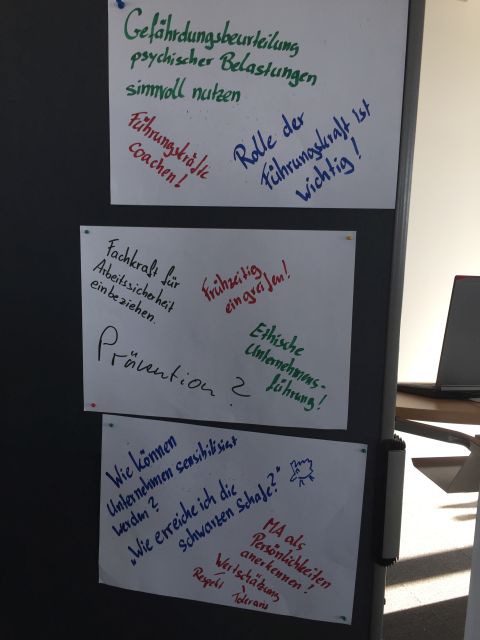 Gefährdungsbeurteilung
psychischer Belastungen
sinnvoll nutzen
Führungskräfte
coachen!
Rolle der
Führungskraft ist
wichtig!
Fachkraft für
Arbeitssicherheit
einbeziehen.
Frühzeitig
eingreifen!
Prävention?
Ethische
Unternehmens-
führung!
Wie können
Unternehmen sensibilisiert
werden?
„Wie erreiche ich die
schwarzen Schafe?"
MA als
Persönlichkeiten
anerkennen!
Wertschätzung
Respekt
Toleranz